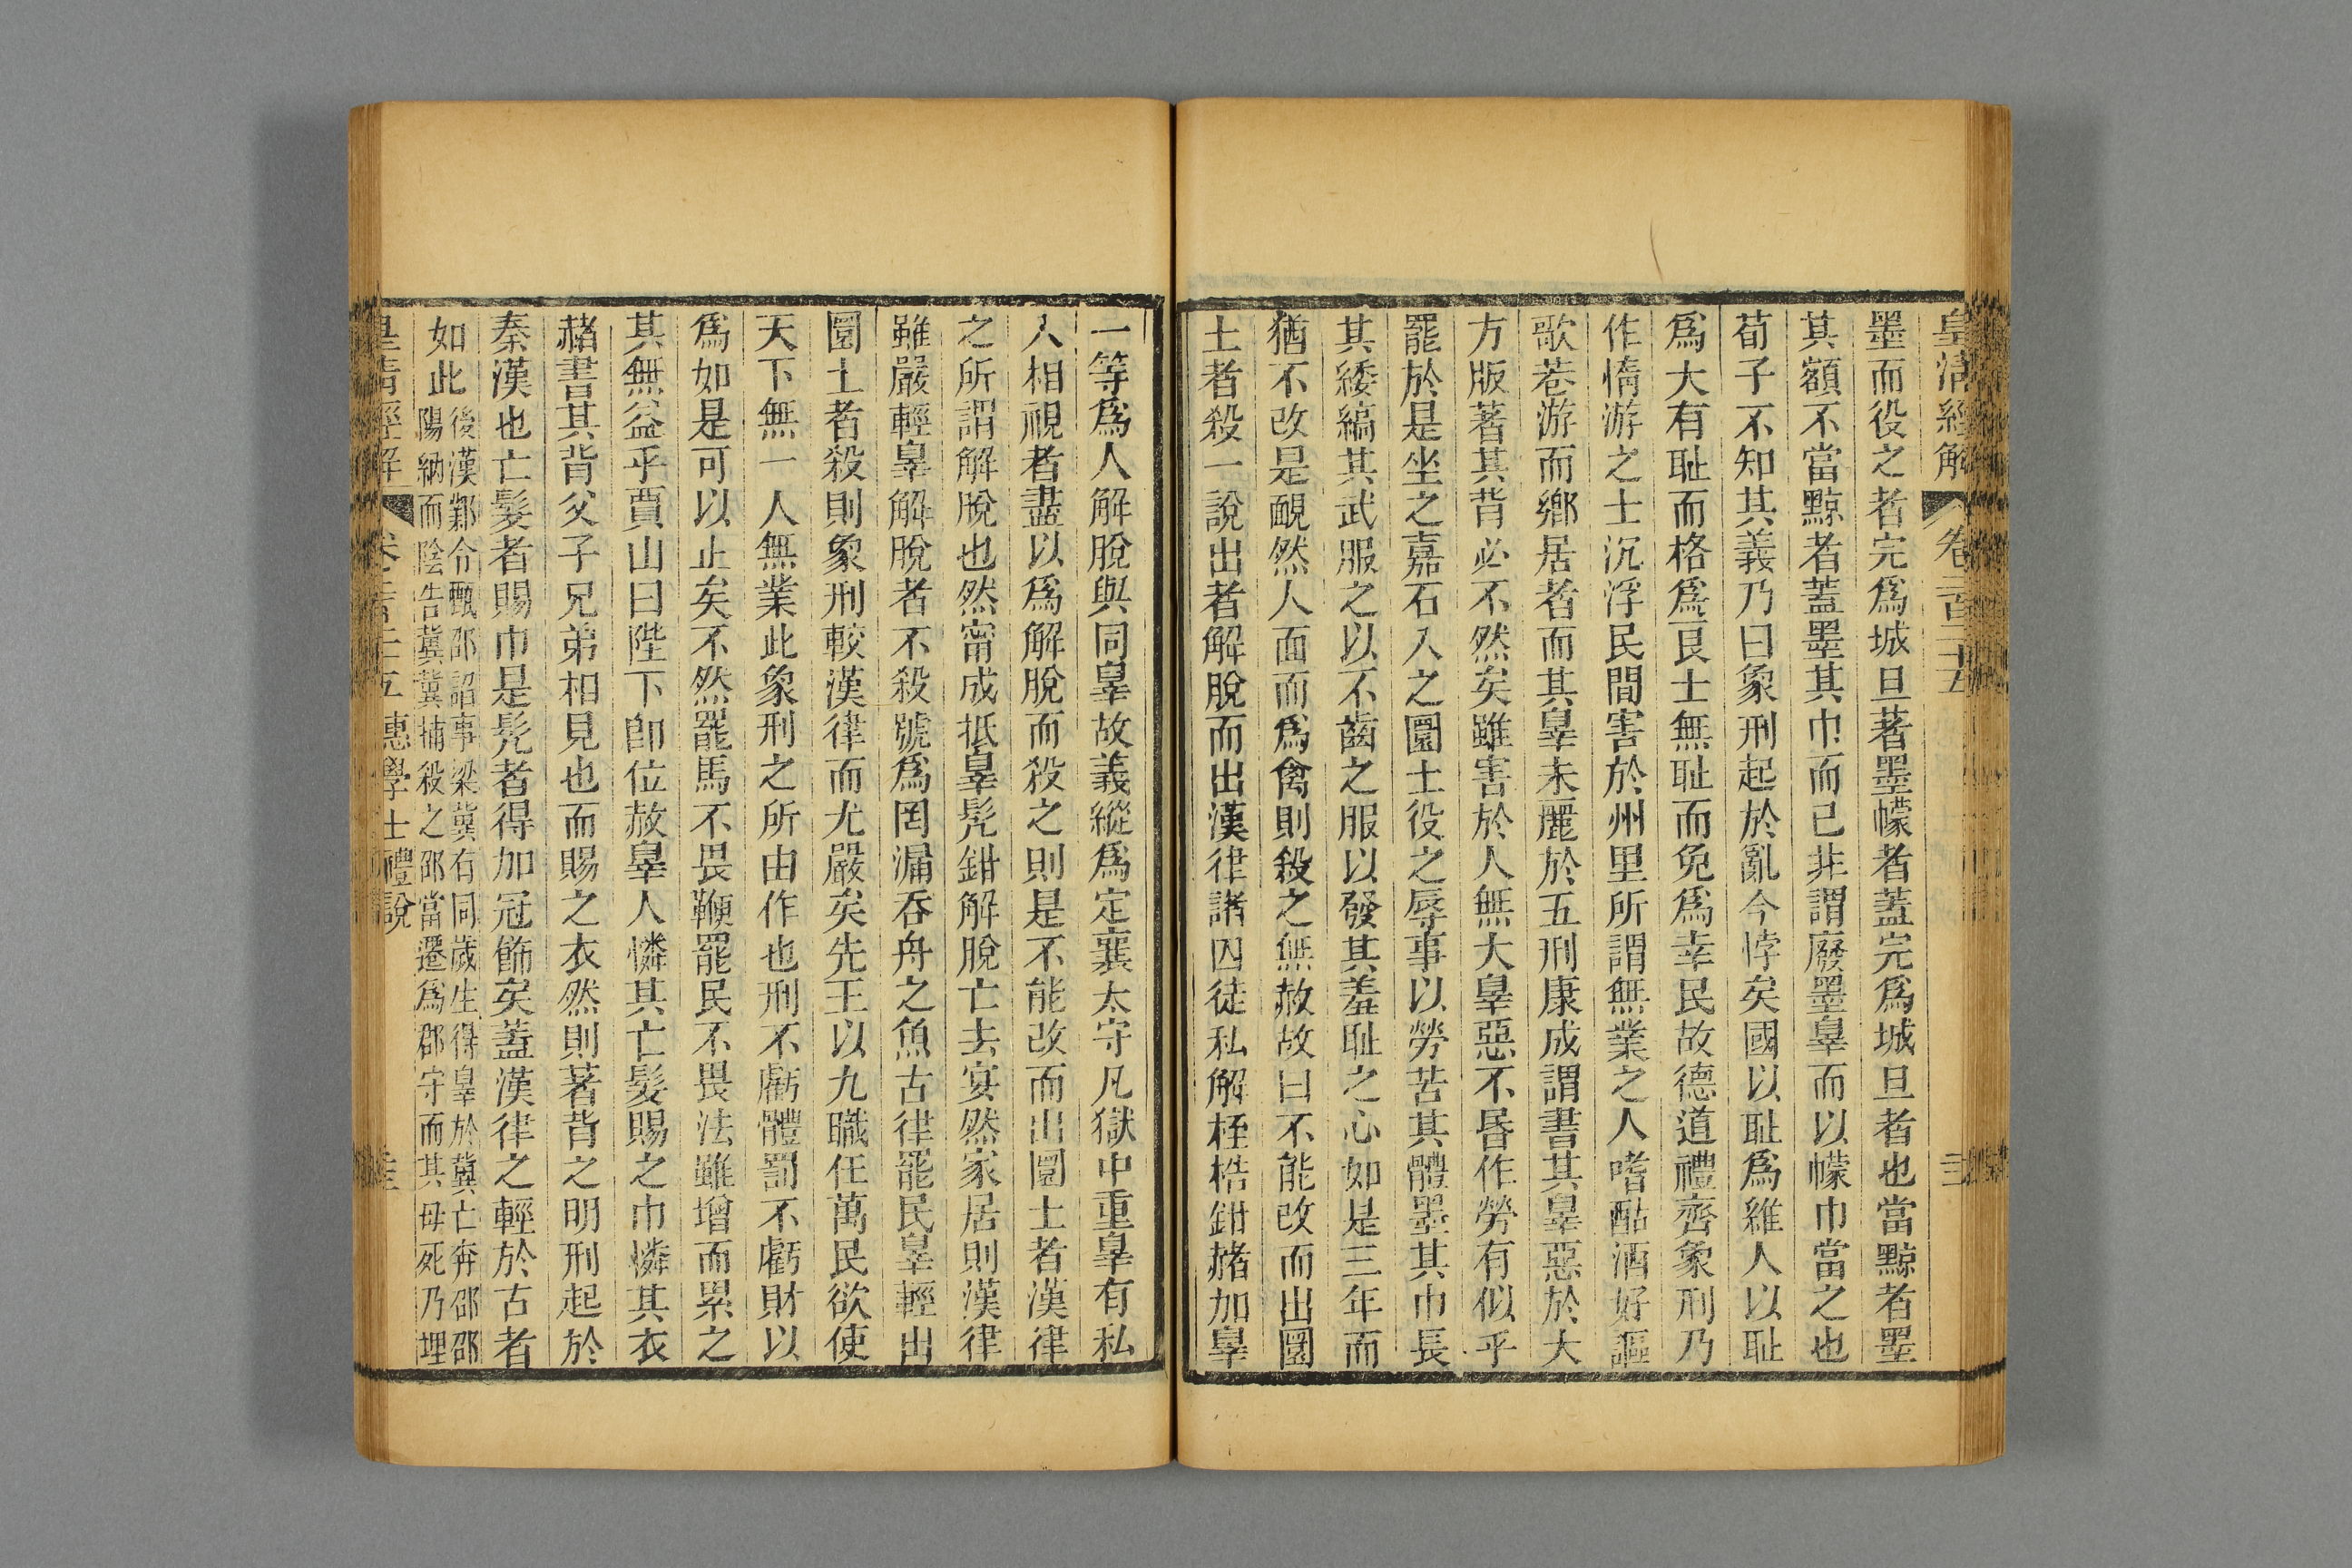 皇清經解 卷二百二十五
墨而役之者完爲城旦著墨幪者蓋完爲城旦者也當黥者墨
其額不當黥者蓋墨其巾而已非謂廢墨辠而以幪巾當之也
荀子不知其義乃曰象刑起於亂今悖矣國以耻爲維人以耻
爲大有耻而格爲艮士無耻而免爲幸民故德道禮齊象刑乃
作惰游之士沉浮民間害於州里所謂無業之人嗜酤酒好謳
歌巷游而鄉居者而其辠未麗於五刑康成謂書其辠惡於大
方版著其背必不然矣雖害於人無大辠惡不昏作勞有似乎
罷於是坐之嘉石入之圜土役之辱事以勞苦其體墨其巾長
其緌縞其武服之以不齒之服以發其羞耻之心如是三年而
猶不改是靦然人面而爲禽則殺之無赦故曰不能改而出圜
土者殺一說出者解脫而出漢律諸囚徒私解桎梏鉗赭加辠
一等爲人解脫與同辠故義縱爲定襄太守凡獄中重辠有私
入相視者盡以爲解脫而殺之則是不能改而出圜土者漢律
之所謂解脫也然甯成抵辠髡鉗解脫亡去宴然家居則漢律
雖嚴輕辠解脫者不殺號爲罔漏吞舟之魚古律罷民辠輕出
圜土者殺則象刑較漢律而尤嚴矣先王以九職任萬民欲使
天下無一人無業此象刑之所由作也刑不虧體罰不虧財以
爲如是可以止矣不然罷馬不畏鞭罷民不畏法雖增而累之
其無益乎賈山曰陛下卽位赦辠人憐其亡髮賜之巾憐其衣
赭書其背父子兄弟相見也而賜之衣然則著背之明刑起於
秦漢也亡髮者賜巾是髡者得加冠飾矣蓋漢律之輕於古者
如此後漢鄴令甄邵諂事梁冀有同歲生得辠於冀亡奔邵邵
陽納而陰告冀冀捕殺之邵當遷爲郡守而其母死乃埋
皇清經解 惠學士禮說